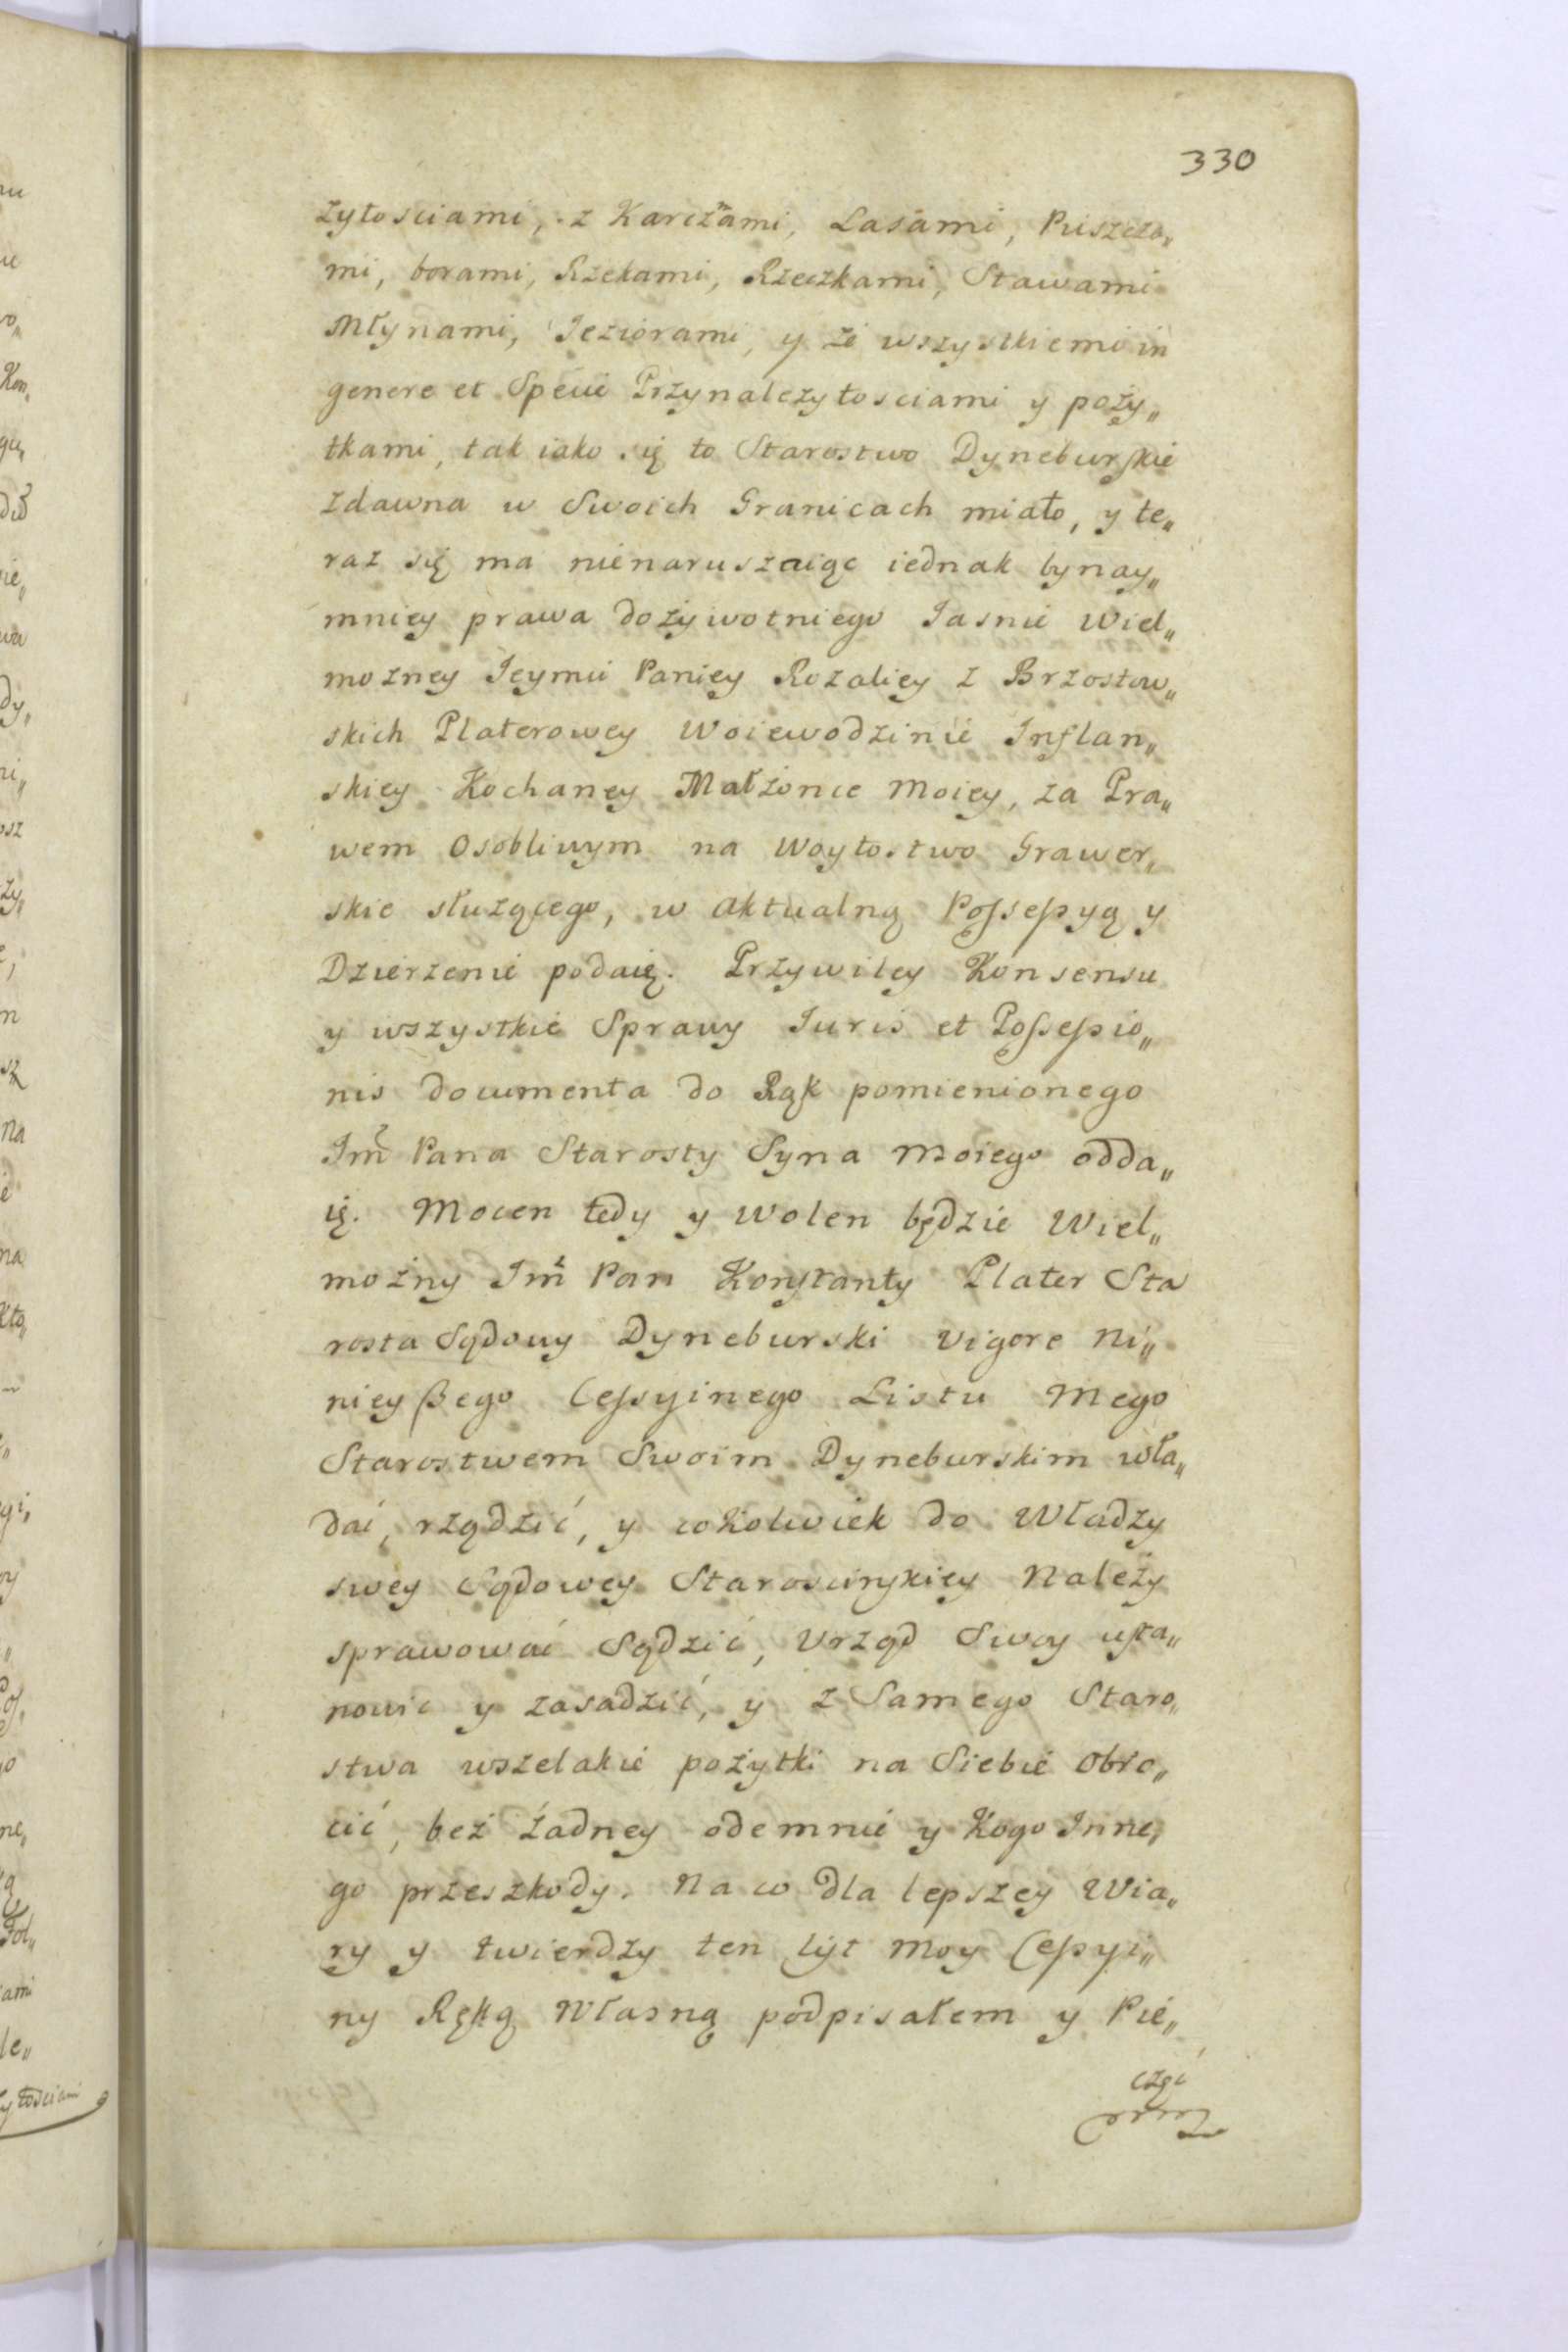 330
żytosciami, z Karczmami, Lasami, Puszcza„
mi, borami, Rzekami, Rzeczkami, Stawami
Młynami, Jeziorami, y ze wszystkiemi in
genere et Specie Przynależytosciami y poży„
tkami, tak iako się to Starostwo Dyneburskie
zdawna w Swoich Granicach miało, y te„
raz się ma nienaruszaiąc iednak bynay„
mniey prawa dożywotniego Jasnie Wiel„
możney Jeymci Paniey Rozaliey z Brzostow„
skich Platerowey Woiewodzinie Inflan„
skiey Kochaney Małżonce Moiey, za Pra„
wem Osobliwym na Woytostwo Grawer„
skie służącego, w aktualną Possessyą y
Dzierżenie podaię. Przywiley Konsensu
y wszystkie Sprawy Juris et Possessio„
nis documenta do Rąk pomienionego
Jmci Pana Starosty Syna Moiego odda„
ię. Mocen tedy y Wolen będzie Wiel„
możny Jmci Pan Konstanty Plater Sta
rosta Sądowy Dyneburski vigore Ni„
nieyßego Cessyinego Listu Mego
Starostwem Swoim Dyneburskim wła„
dać, rządzić, y cokolwiek do Władzy
swey Sądowey Starościnskiey Należy
sprawować Sądzić, Urząd Swoy usta„
nowić y zasadzić, y z Samego Staro„
stwa wszelakie pożytki na Siebie obro„
cić, bez żadney odemnie y Kogo Inne„
go przeszkody. Na co dla lepszey Wia„
ry y twierdzy ten list Moy Cessyi„
ny Ręką Własną podpisałem y Pie„
częć